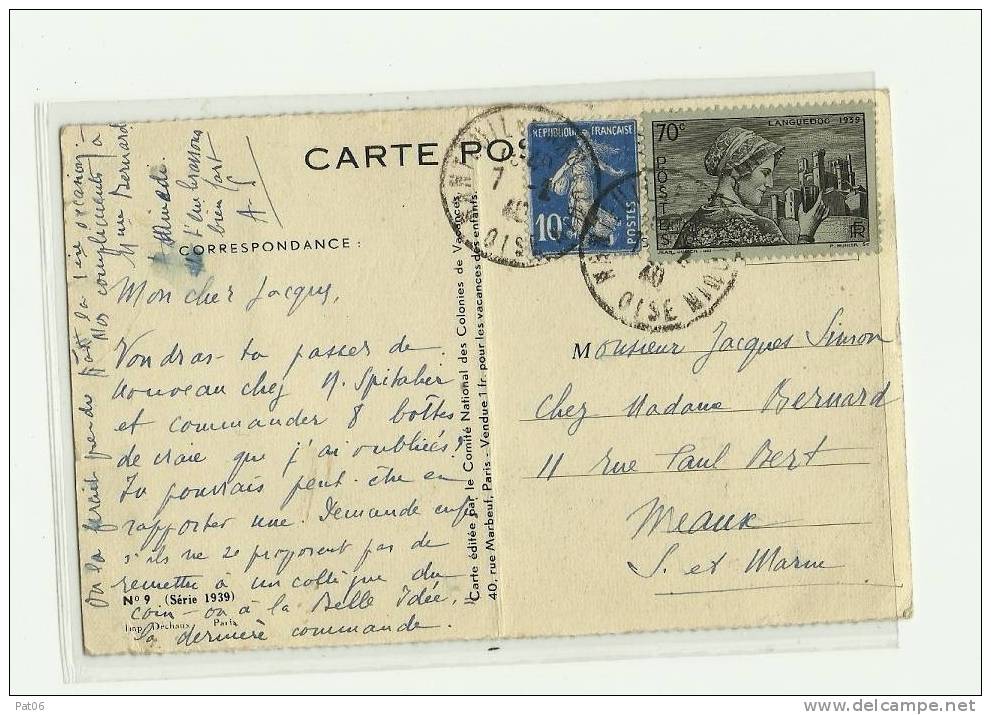 CARTE POS
CORRESPONDANCE :
Mon cher Jacques,
Voudras-tu passer de
nouveau chez M. Spitalier
et commander 8 bottes
de craie que j'ai oubliées ?
Tu pourrais peut-être en
rapporter une. Demande
s'ils ne te proposent pas de
remettre à un collègue du
coin - ou à la Belle Idée,
la dernière commande.
On la prendre la 1ère occasion.
Nos compliments à
Mme Bernard
t'embrassons
bien fort
A
Nº 9 (Série 1939)
Imp. Déchaux Paris
Carte éditée par le Comité National des Colonies de Vacances
40, rue Marbeuf, Paris - Vendue 1 fr. pour les vacances des enfants.
RÉPUBLIQUE FRANÇAISE
10c
POSTES
70c
LANGUEDOC 1939
POSTES
RF
7
40
OISE
40
OISE
Monsieur Jacques Simon
chez Madame Bernard
11 rue Paul Bert
Meaux
S. et Marne
Pat06
www.delcampe.net